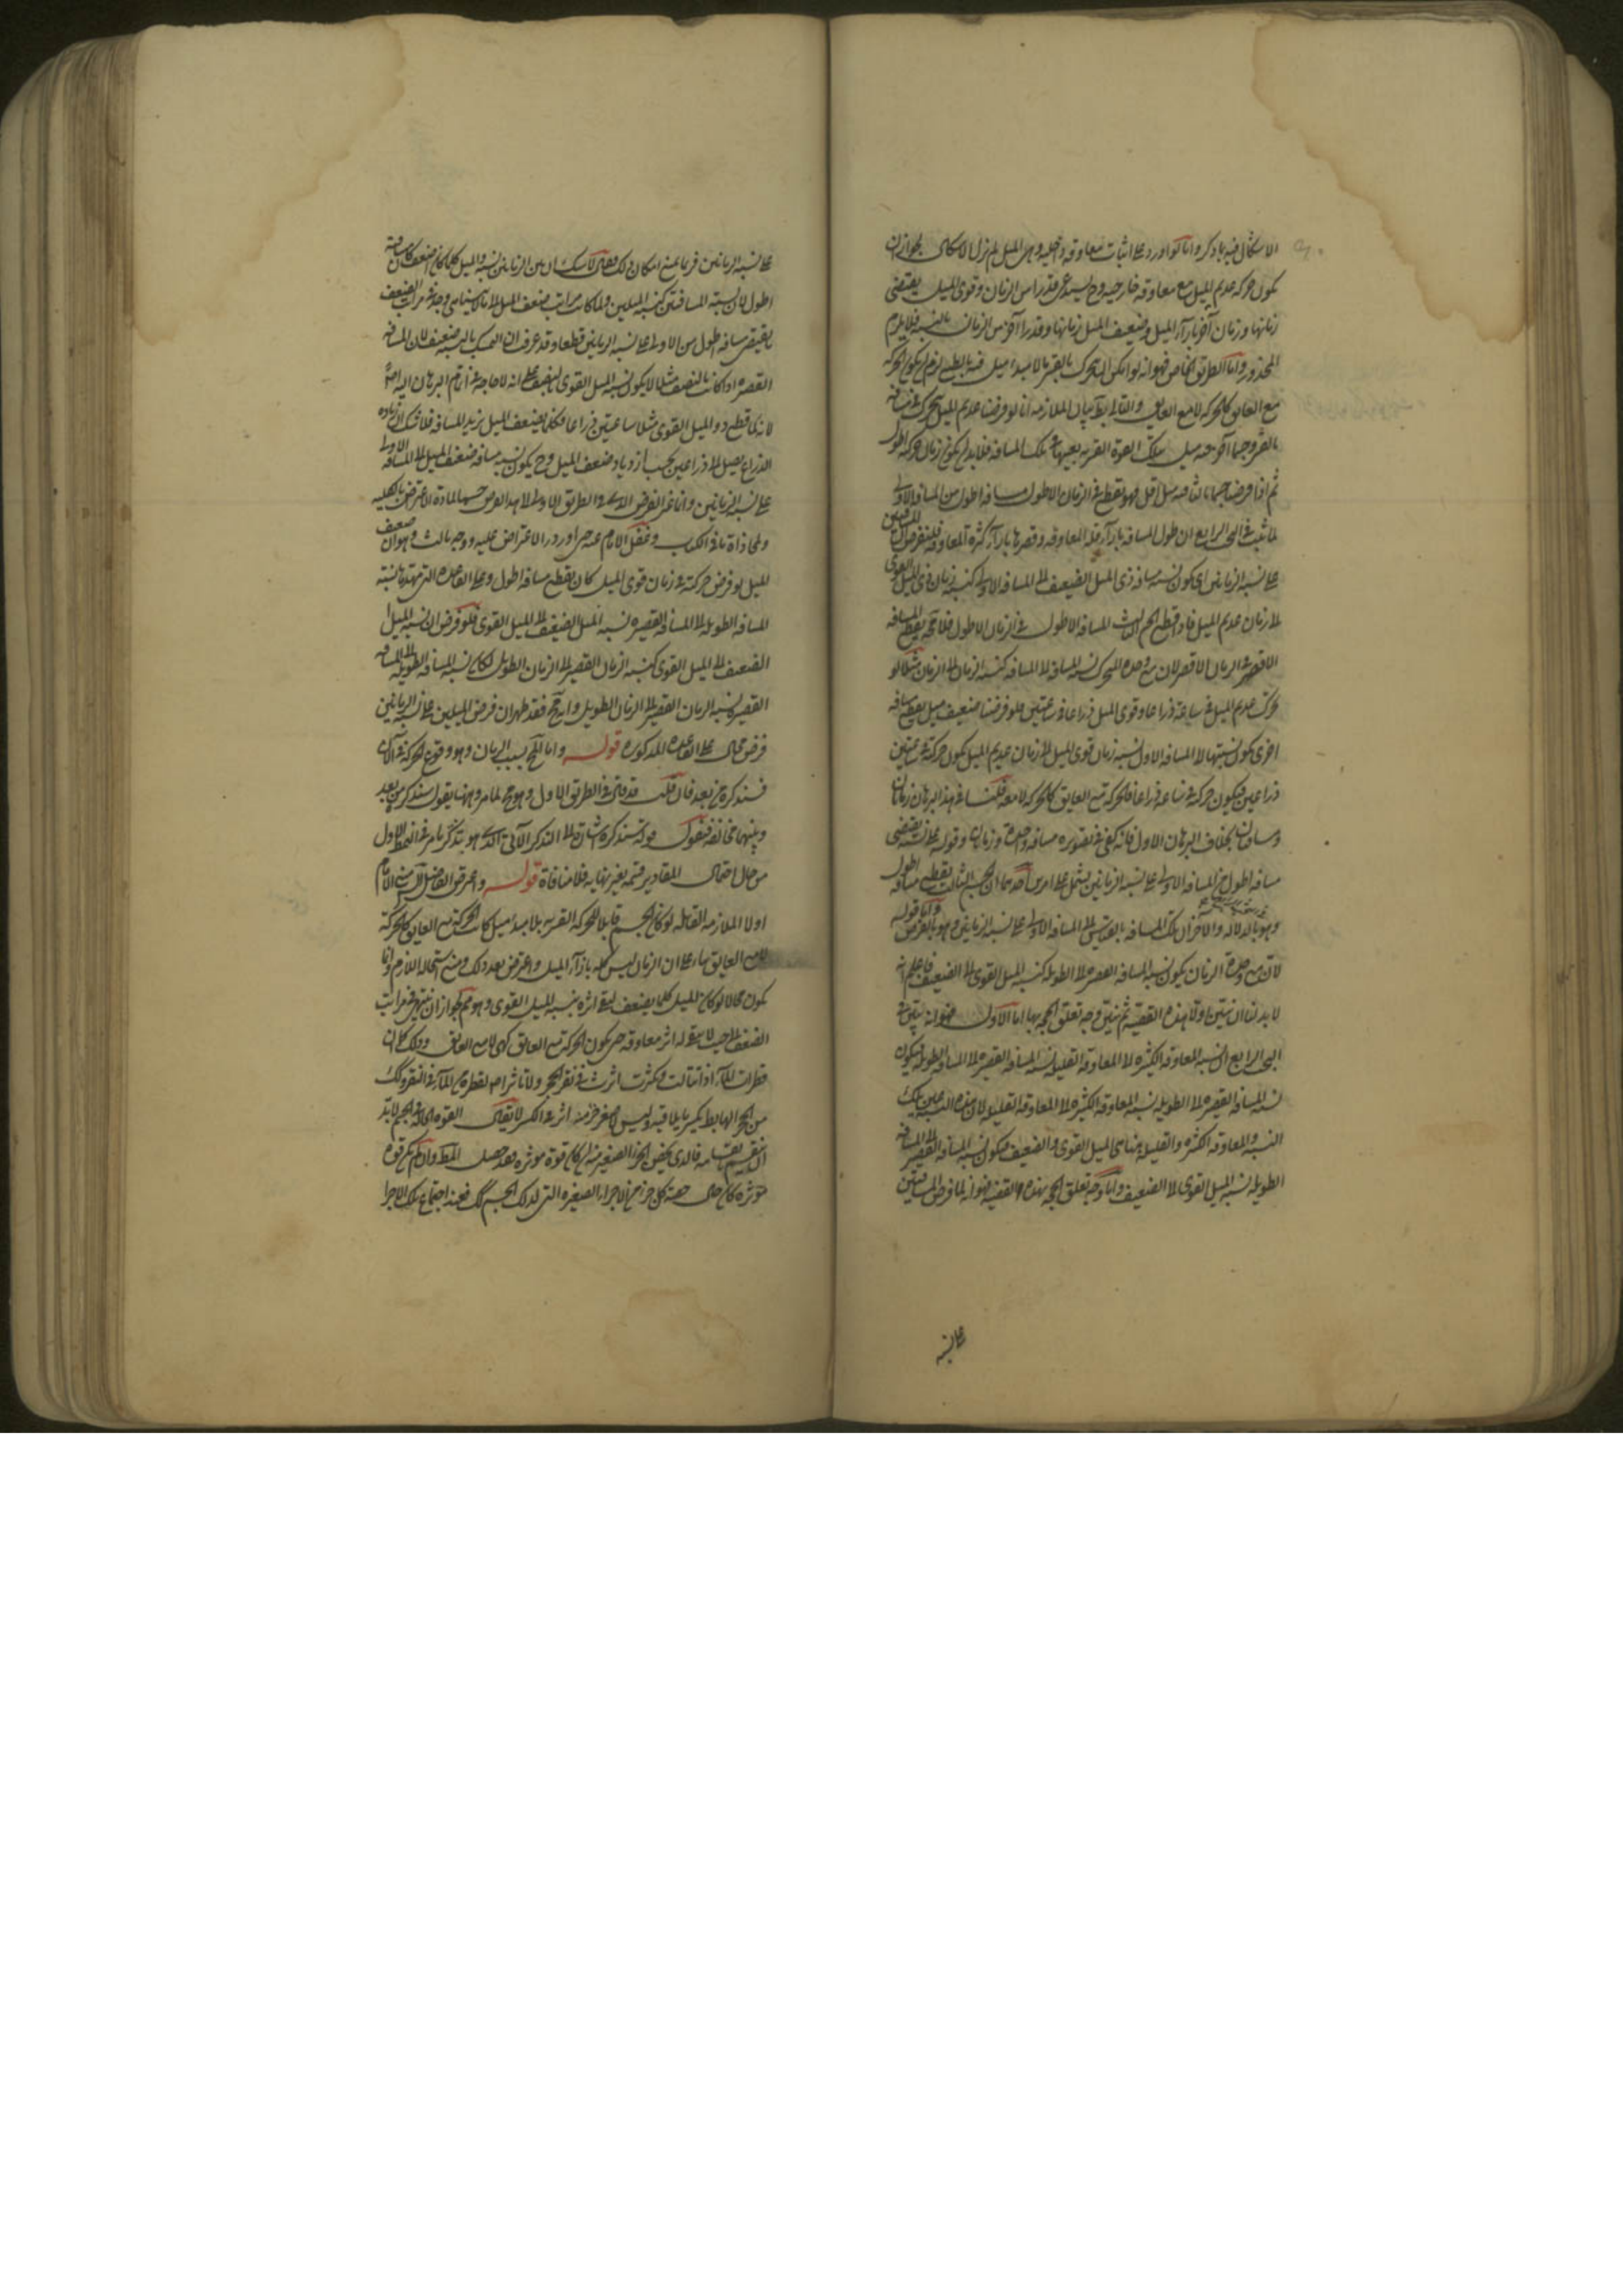 الاشكال فيه بما ذكر واما لو اورد على اثبات معاوقة داخلية وهى الميل لم يزل الاشكال لجواز ان
يكون حركة عديم الميل مع معاوقة خارجية وح يستدعى قدرا من الزمان وقوى الميل يقتضى
زمانها وزمان آخر بازآء الميل وضعيف الميل زمانها وقدرا آخر من الزمان بالنسبة فلا يلزم
المحذور واما الطريق الخاص فهو انه لو امكن ان يتحرك بالقسر ما لا مبدء ميل فيه بالطبع لزم ان يكون الحركة
مع العايق كالحركة لا مع العايق والتالى بط بيان الملازمة انا لو فرضنا عديم الميل تحرك فى مسافة
بالقسر وجسما آخر فيه ميل بتلك القوة القسرية بعينها فى تلك المسافة فلا بد ان يكون زمان حركته اطول
ثم اذا فرضنا جسما ثالثا فيه ميل اقل فهو يقطع فى الزمان الاطول مسافة اطول من المسافة الاولى
لما ثبت فى البحث الرابع ان طول المسافة بازآء قلة المعاوقة وقصرها بازآء كثرة المعاوقة فلنفرض ان المسافتين
على نسبة الزمانين اى يكون نسبة مسافة ذى الميل الضعيف الى المسافة الاولى كنسبة زمان ذى الميل القوى
الى زمان عديم الميل فاذا قطع الجسم الثالث المسافة الاطول فى الزمان الاطول فلا محة يقطع المسافة
الاقصر فى الزمان الاقصر لان مع وحدة المتحرك نسبة المسافة الى المسافة كنسبة الزمان الى الزمان مثلا لو
تحرك عديم الميل فى ساعة ذراعا وقوى الميل ذراعا فى ساعتين فلو فرضنا ضعيف ميل يقطع مسافة
اخرى يكون نسبتها الى المسافة الاولى نسبة زمان قوى الميل الى زمان عديم الميل يكون حركته فى ساعتين
ذراعين فيكون حركته فى ساعة ذراعا فالحركة مع العايق كالحركة لا معه فلنا فى هذا البرهان زمانان
ومسافتان بخلاف البرهان الاول فانه يكفى فى تصويره مسافة واحدة وزمان وقوله على نسبة يقتضى
مسافة اطول من المسافة الاولى على نسبة الزمانين يشتمل على امرين احدهما ان الجسم الثالث يقطع مسافة اطول
وهو بالدلالة والآخر ان تلك المسافة بالقياس الى المسافة الاولى على نسبة الزمانين وهو بالفرض واما قوله
لان مع وحدة الزمان يكون نسبة المسافة القصيرة الى الطويلة كنسبة الميل القوى الى الضعيف فاعلم انه
لا بد لنا ان نبين اولا هذه القضية ثم نبين وجه تعلق الحجة بها اما الاول فهو انه تبين فى
البحث الرابع ان نسبة المعاوقة الكثيرة الى المعاوقة القليلة نسبة المسافة القصيرة الى المسافة الطويلة فيكون
نسبة المسافة القصيرة الى الطويلة نسبة المعاوقة الكثيرة الى المعاوقة القليلة لان هذه النسبة عين تلك
النسبة والمعاوقة الكثيرة والقليلة هنا هى الميل القوى والضعيف فيكون نسبة المسافة القصيرة الى المسافة
الطويلة نسبة الميل القوى الى الضعيف واما وجه تعلق الحجة بهذه القضية فهو انه لما فرض المسافتين
على نسبة
على نسبة الزمانين فربما يمنع امكان ذلك فقال لا شك ان بين الزمانين نسبة والميل كلما كان اضعف كان مسافته
اطول لان نسبة المسافتين كنسبة الميلين ولما كانت مراتب ضعف الميل الى ما لا يتناهى وجد فى مراتب الضعف
ما يقتضى مسافة اطول من الاولى على نسبة الزمانين قطعا وقد عرف ان التمسك بالنسبة ضعيف لان المسافة
القصيرة اذا كانت بالنصف مثلا لا يكون نسبة الميل القوى بالنصف على انه لا حاجة فى اتمام البرهان اليه اصلا
لانه لما قطع ذو الميل القوى مثلا ساعتين ذراعا فكلما يضعف الميل يزيد المسافة فلا شك ان زيادة
الذراع يصل الى ذراعين بحسب ازدياد ضعف الميل وح يكون نسبة مسافة ضعيف الميل الى المسافة الاولى
على نسبة الزمانين وانما غير الفرض الذى فى الطريق الاول الى هذا الفرض حسما لمادة الاعتراض بالكلية
ولمحاذاة ما فى الكتاب وغفل الامام عنه حتى اورد الاعتراض عليه ووجه ثالث وهو ان ضعيف
الميل لو فرض حركته فى زمان قوى الميل كان يقطع مسافة اطول وعلى القاعدة التى مهدنا نسبة
المسافة الطويلة الى المسافة القصيرة نسبة الميل الضعيف الى الميل القوى فلو فرض ان نسبة الميل
الضعيف الى الميل القوى كنسبة الزمان القصير الى الزمان الطويل لكان نسبة المسافة الطويلة الى المسافة
القصيرة نسبة الزمان القصير الى الزمان الطويل وانه مح فقد ظهر ان فرض الميلين على نسبة الزمانين
فرض محال على القاعدة المذكورة قوله واما المح بسبب الزمان وهو وقوع الحركة فى الآن
فسنذكره من بعد فان قلت قد قال فى الطريق الاول وهو مح لما مر وههنا يقول سنذكر من بعد
وبينهما مخالفة فنقول قوله سنذكره اشارة الى التذكر الآتى الذى هو تذكر ما مر فى النمط الاول
من حال احتمال المقادير قسمة بغير نهاية فلا منافاة قوله واعترض الفاضل الشارح الامام
اولا الملازمة القائلة لو كان الجسم قابلا للحركة القسرية بلا مبدء ميل كانت الحركة مع العايق كالحركة
لا مع العايق بناء على ان الزمان ليس كله بازآء الميل واعترض بعد ذلك ومنع استحالة اللازم وانما
يكون محالا لو كان الميل كلما يضعف يبقى اثره بنسبة الميل القوى وهو مم لجواز ان ينتهى فى مراتب
الضعف الى حيث لا يبقى له اثر معاوقة حتى يكون الحركة مع العايق كهى لا مع العايق وذلك كما ان
قطرات المآء اذا تتالت وكثرت اثرت فى نقر الحجر ولا تاثير لقطرة من المآء فى النقر وكك
من الحجر الهابط يكسر ما يلاقيه وليس لاصغر جزء منه اثر فى الكسر لا يقال القوة الحالة فى الجسم لا بد
ان ينقسم بانقسامه فالذى يخص الجزء الصغير منه ان كان قوة موثرة فقد حصل المط وان لم يكن قوة
موثرة كان حال حصة كل جزء من الاجزاء الصغيرة التى لذلك الجسم كك فعند اجتماع تلك الاجزا